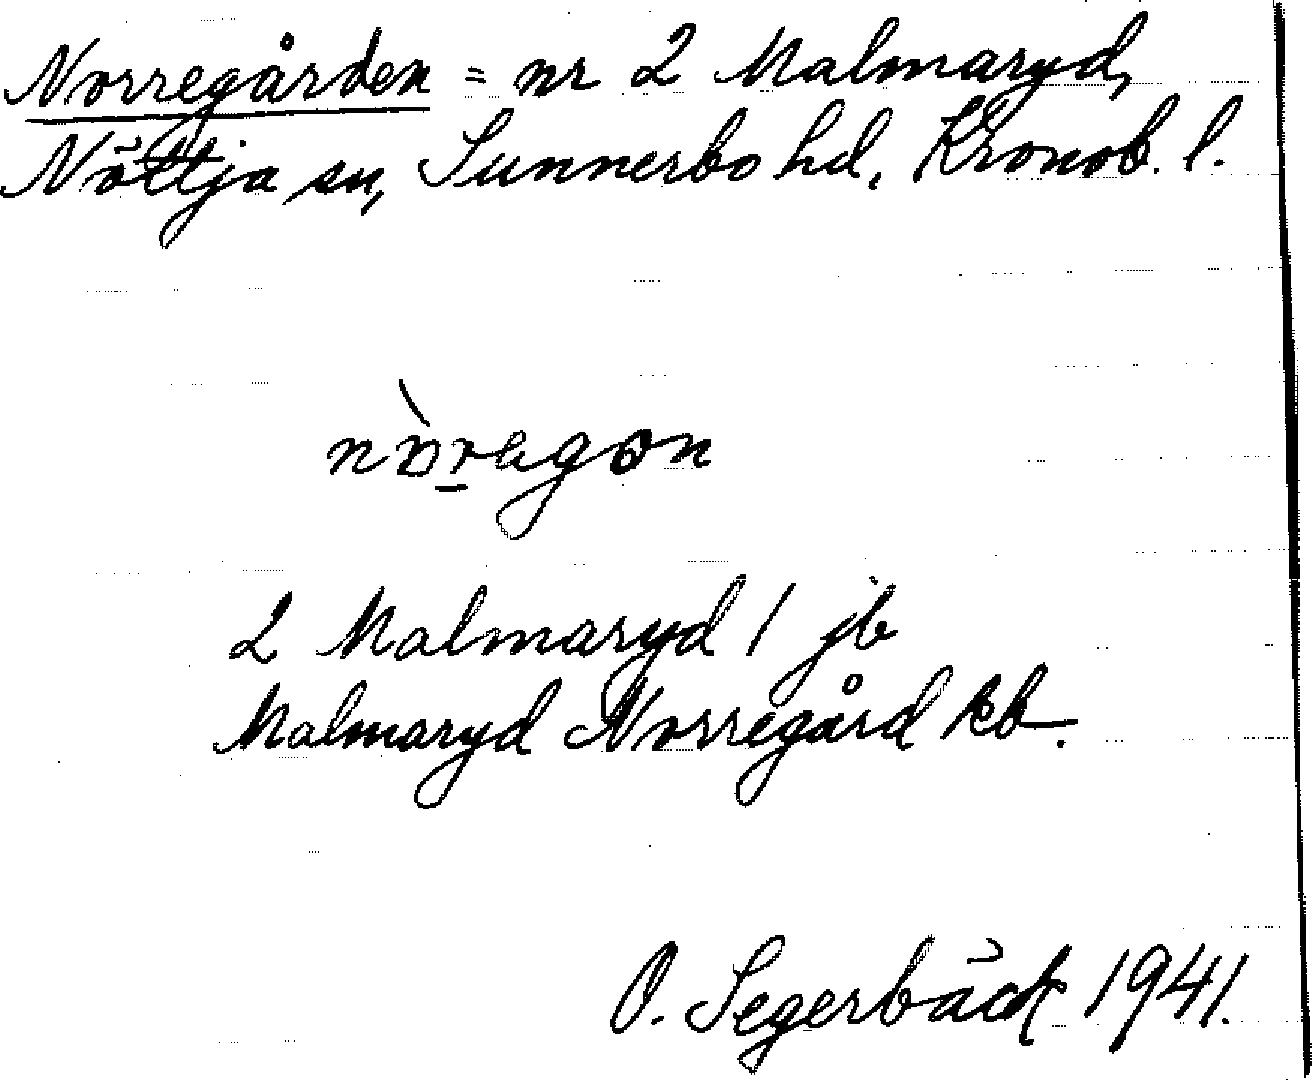 Norregården = nr 2 Malmaryd,
Nöttja sn, Sunnerbo hd, Kronob. l.
nòregon
2 Malmaryd / jb
Malmaryd Norregård kb.
O. Segerbäck 1941.